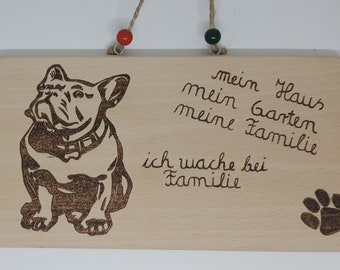 mein Haus
mein Garten
meine Familie
ich wache bei
Familie